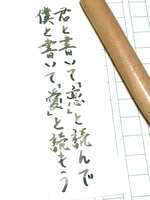 君と書いて「恋」と読んで
僕と書いて「愛」と読もう